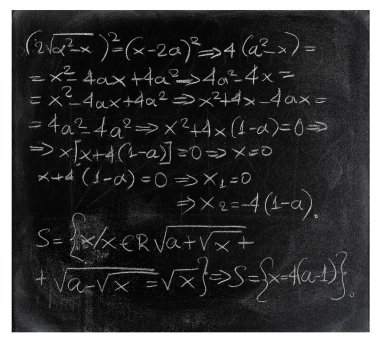 (2√a²-x)²=(x-2a)²⇒4(a²-x)=
=x²-4ax+4a²⇒4a²-4x=
=x²-4ax+4a²⇒x²+4x-4ax=
=4a²-4a²⇒x²+4x(1-a)=0⇒
⇒x[x+4(1-a)]=0⇒x=0
x+4(1-a)=0⇒x₁=0
⇒x₂=-4(1-a).
S={x/x∈R√a+√x+
+√a-√x=√x}⇒S={x=4(a-1)}.